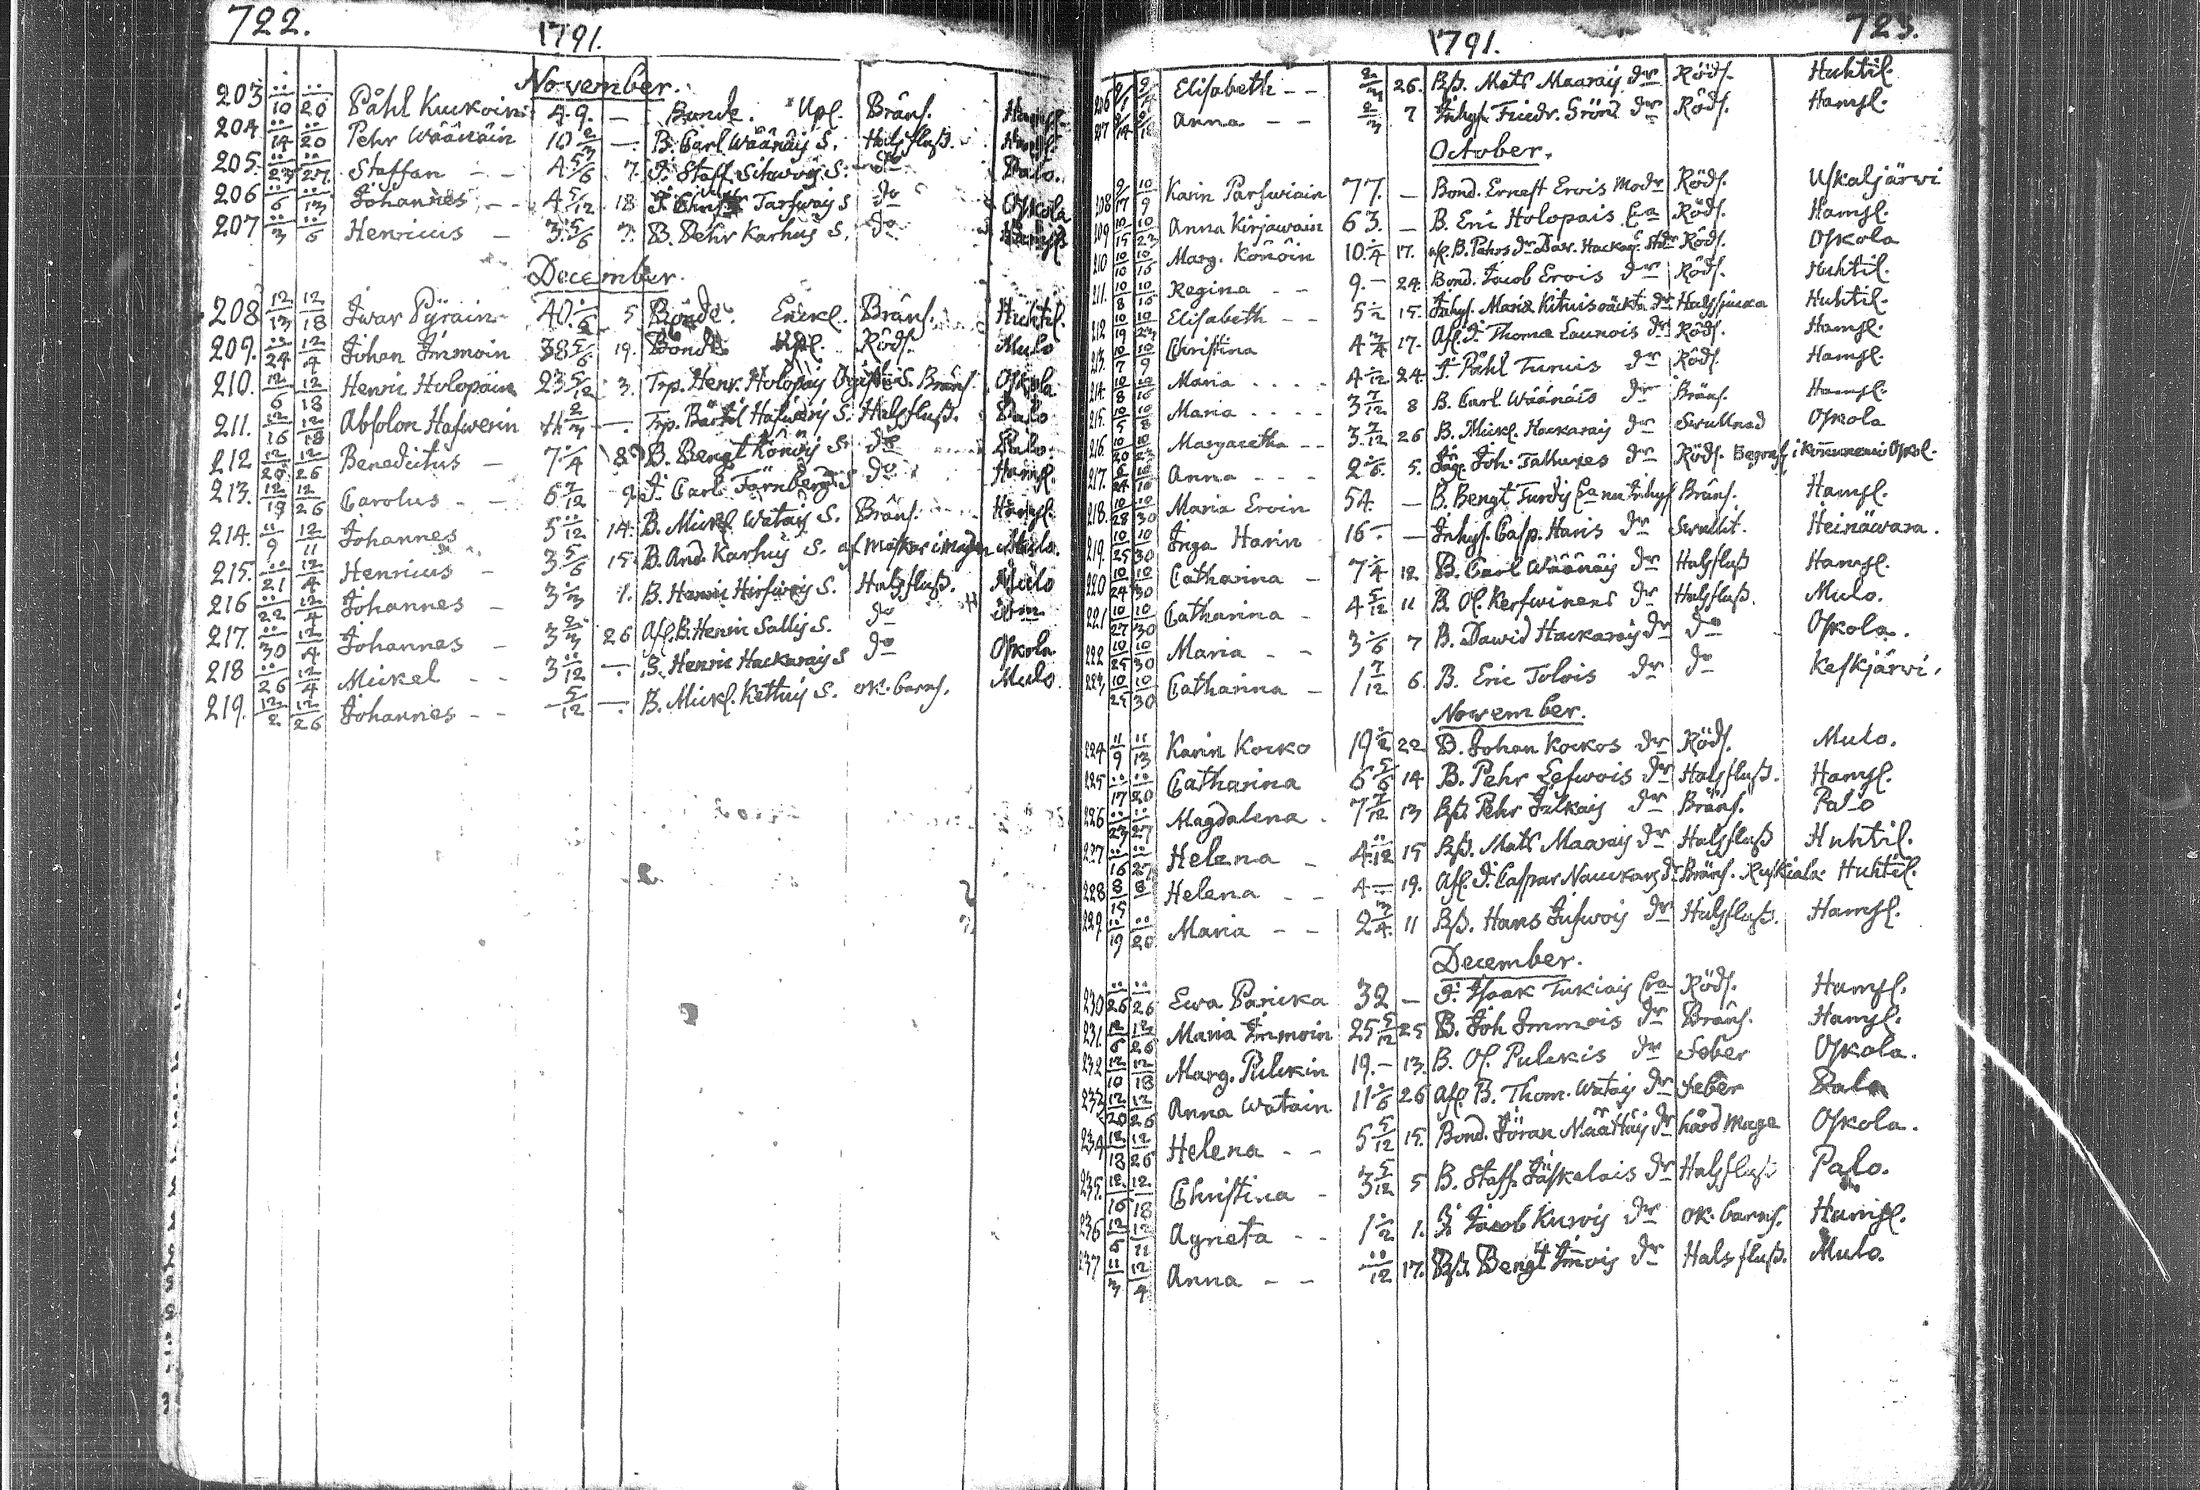 722.
1791.
November.
203 10 20 Påhl Kuckoin 49. — Bonde. Upl. Bräns. Hamsl.
204. 14 20 Pehr Wäänäin 10 2/3 —. B. Carl Wäänäis S. Halsfluß. Hamsl.
205. 23 27 Staffan - - 4 5/6 7. J. Staff. S. do Palo.
206 6 13 Johannes - - 4 5/12 18 J. S do Oskola
207 3 6 Henricus - 3 5/6 7. B. Pehr Karhus S. do Hamsl.
December.
208 12/13 12/18 Iwar Pÿräin 40. 5 Bonde. Enckl. Bräns. Huhtil.
209. 24 12/4 Johan Immoin 38 5/6 19. Bonde Rôds. Mulo
210. 12/6 12/18 Henric Holopain 23 5/12 3. Trp. Henr. Holopais S. Bräns. Oskola
211. 12/16 12/18 Absolon Hafwerin 2/3 —. Trp. Bärtil S. Halsfluß. Palo
212 12/20 12/26 Benedictus - 7 1/4 8 B. Bengt S. do Palo.
213. 12/19 12/26 Carolus - - 6 7/12 9 J. Carl Färnbergs S do Hamsl.
214. 11/9 12/11 Johannes 5 /12 14. B. Mickl. Watais S. Bräns. Hamsl.
215. 21 12/4 Henricus - 3 5/6 15 B. And. Karhuis S. af Maskar i magen Mulo.
216 22 12/4 Johannes - 3 1/3 1. B. Henric Hirfwois S. Halsfluß. Mulo
217. 30 12/4 Johannes - 3 2/3 26 Afl. B. Henric Sallis S. do
218 26 12/4 Mickel - - 3 /12 —. B. Henric Hackarais S do Oskola
219. 12/2 12/26 Johannes - - 5/12 —. B. Mickl. Kettuis S. ok. barns. Mulo.
723.
1791.
Elisabeth - - 26. Bß. Mats Maarais dr Rôds. Huhtil.
Anna - - 2/3 7 Inhys. Friedr. Gröns dr Rôds. Hamsl.
October.
208 9/17 10/9 Karin Parfwiain 77. — Bond. Ernest Erois Modr Rôds. Uskaljärwi
209 10/15 10/23 Anna Kirjawain 63. — B. Eric Holopais Ea Rôds. Hamsl.
210 10/10 10/16 Marg. Könöin 10 1/4 17. afl. B. Pehrs dr Daw. Hackar. Stdr Rôds. Oskola
211. 10/8 10/16 Regina - - 9. — 24. Bond. Jacob Erois dr Rôds. Huhtil.
212 10/19 10/23 Elisabeth - - 5 1/2 15. Inhys. Maria dr Halssiuka Huhtil.
213. 10/7 10/9 Christina 4 3/4 17. Afl. J. Thoma Launois dr Rôds. Hamsl.
214. 10/8 10/16 Maria . . . . 4 /12 24. J. Påhl Turuis dr Rôds. Hamsl.
215. 10/5 10/8 Maria . . . . 3 7/12 8 B. Carl Wäänäis dr Bräns. Hamsl.
216. 10/20 10/23 Margaretha - - 3. 7/12 26 B. Mickl. Hackarais dr Swullnad Oskola
217. Anna - - - 2 1/6 5. Joh. dr Rôds. Begrafs i Oskol.
218. 10/28 10/30 Maria Eroin 54. — B. Bengt Turdis Ea nu Inhys Bräns. Hamsl.
219. 10/25 10/30 Inga Harin 16 — — Inhys. Casp. Haris dr Swullit. Heinäwara.
220 10/24 10/30 Catharina - 7 1/4 12 B. Carl Wäänäis dr Halsfluß Hamsl.
221 10/27 10/30 Catharina - 4 5/12 11 B. Ol. Kerfwinens dr Halsfluß. Mulo.
222 10/25 10/30 Maria - - 3 1/6 7 B. Dawid Hackarais dr do Oskola.
223 10/25 10/30 Catharina - 1 7/12 6. B. Eric Tolois dr do Keskjärwi.
November.
224 11/9 11/13 Karin Kocko 19 1/2 22 B. Johan Kockos dr Rôds. Mulo.
225 17 20 Catharina 6 5/6 14 B. Pehr Lefwois dr Halsfluß. Hamsl.
226 23 27 Magdalena . 7 7/12 13 Bß. Pehr Jülkais dr Bräns. Palo
227 16 27 Helena - 4 /12 15 Bß. Mats Maarais dr Halsfluß Huhtil.
228 8/15 8 Helena - - 4 — 19. Afl. J. Caspar Nauckars dr Bräns. Ruskiala. Huhtil.
229 19 20 Maria - - 2 3/4 11 Bß. Hans dr Halsfluß. Hamsl.
December.
230 26 26 Ewa Paricka 32 — J. Isaak Tukiais Ea Rôds. Hamsl.
231. 12/6 12/26 Maria Immoin 25 5/12 25 B. Joh Immois dr Bräns. Hamsl.
232 12/10 12/18 Marg. Pulckin 19. — 13. B. Ol. Pulckis dr Feber Oskola.
233 12/20 12/26 Anna Watain 11 1/6 26 Afl. B. Thom. Watais dr Feber Palo
234 12/13 12/26 Helena - - 5 5/12 15. Bond. Jöran Määttäis dr hård Mage Oskola.
235. 12/16 12/18 Christina - 3 5/12 5 B. Staff. Jäskelais dr Halsfluß Palo.
236 12/5 12/11 Agneta - - 1 1/2 1. J. Jacob Kurois dr ok. barns. Hamsl.
237 11/3 12/4 Anna - - /12 17. Bß. Bengt Im̄ois dr Halsfluß. Mulo.